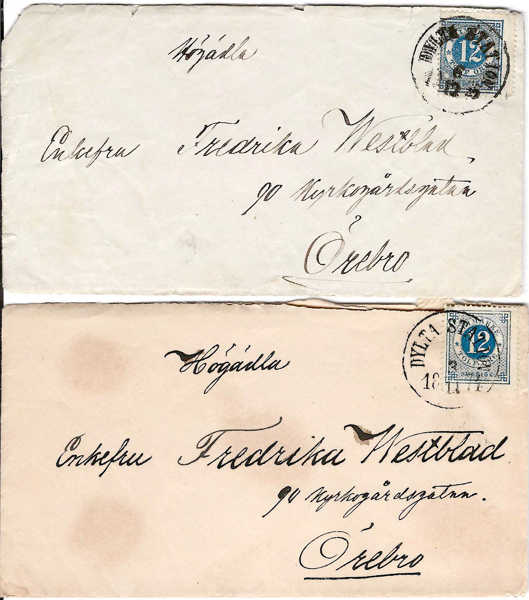 DYLTA STATION
12
Högädla
Enkefru Fredrika Westblad
90 Kyrkogårdsgatan
Örebro
DYLTA STA
12
TOLF ÖRE
18
Högädla
Enkefru Fredrika Westblad
90 Kyrkogårdsgatan.
Örebro